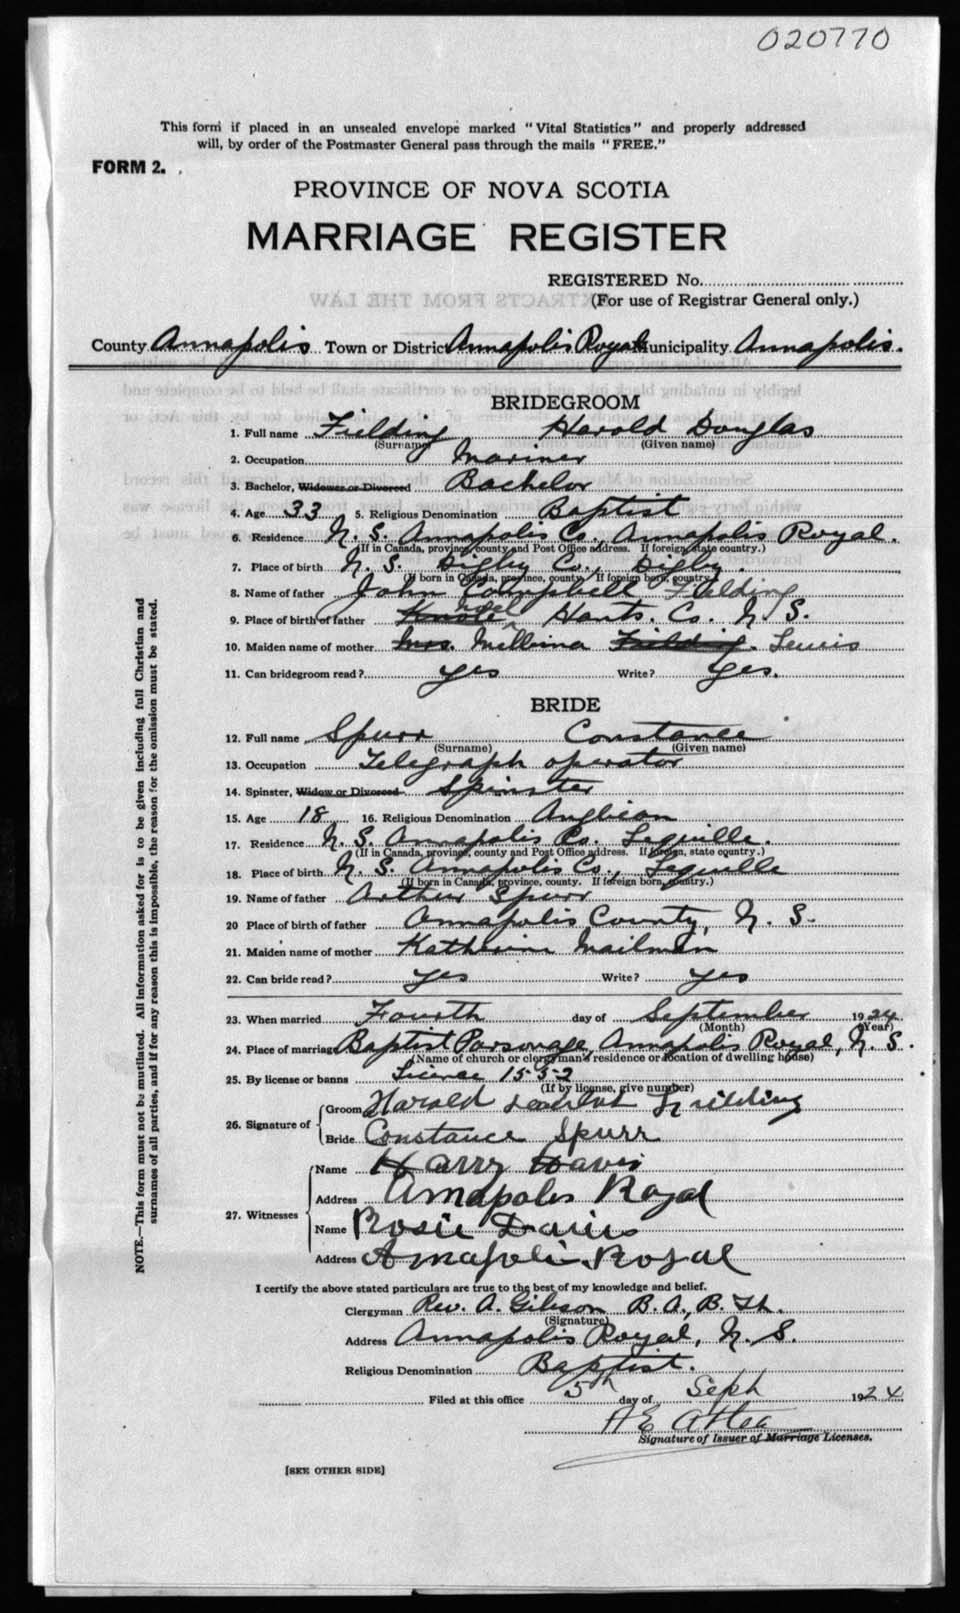 020770
This form if placed in an unsealed envelope marked "Vital Statistics" and properly addressed
will, by order of the Postmaster General pass through the mails "FREE."
FORM 2.
PROVINCE OF NOVA SCOTIA
MARRIAGE REGISTER
REGISTERED No.
(For use of Registrar General only.)
County Annapolis Town or District Annapolis Royal Municipality Annapolis.
BRIDEGROOM
1. Full name Fielding Harold Douglas
(Surname) (Given name)
2. Occupation Mariner
3. Bachelor, Widower or Divorced Bachelor
4. Age 33 5. Religious Denomination Baptist
6. Residence N. S. Annapolis Co., Annapolis Royal.
(If in Canada, province, county and Post Office address. If foreign, state country.)
7. Place of birth N. S. Digby Co., Digby.
(If born in Canada, province, county. If foreign born, country.)
8. Name of father John Campbell Fielding
9. Place of birth of father Noel Hants. Co. N. S.
10. Maiden name of mother Mrs. Melbina Fielding. Lewis
11. Can bridegroom read? yes Write? yes.
BRIDE
12. Full name Spurr Constance
(Surname) (Given name)
13. Occupation Telegraph operator
14. Spinster, Widow or Divorced Spinster
15. Age 18 16. Religious Denomination Anglican
17. Residence N. S. Annapolis Co. Lequille.
(If in Canada, province, county and Post Office address. If foreign, state country.)
18. Place of birth N. S. Annapolis Co., Lequille
(If born in Canada, province, county. If foreign born, country.)
19. Name of father Arthur Spurr
20 Place of birth of father Annapolis County, N. S.
21. Maiden name of mother Katherine Mailman
22. Can bride read? yes Write? yes
23. When married Fourth day of September 1924
(Month) (Year)
24. Place of marriage Baptist Parsonage, Annapolis Royal, N. S.
(Name of church or clergyman's residence or location of dwelling house)
25. By license or banns License 1552
(If by license, give number)
26. Signature of
Groom Harold Fielding
Bride Constance Spurr
27. Witnesses
Name Harry Davis
Address Annapolis Royal
Name Rosie Davis
Address Annapolis Royal
I certify the above stated particulars are true to the best of my knowledge and belief.
Clergyman Rev. A. Gibson B. A., B. Th.
(Signature)
Address Annapolis Royal, N. S.
Religious Denomination Baptist.
Filed at this office 5th day of Sept 1924
A E Atlee
Signature of Issuer of Marriage Licenses.
[SEE OTHER SIDE]
NOTE.—This form must not be mutilated. All information asked for is to be given including full Christian and
surnames of all parties, and if for any reason this is impossible, the reason for the omission must be stated.